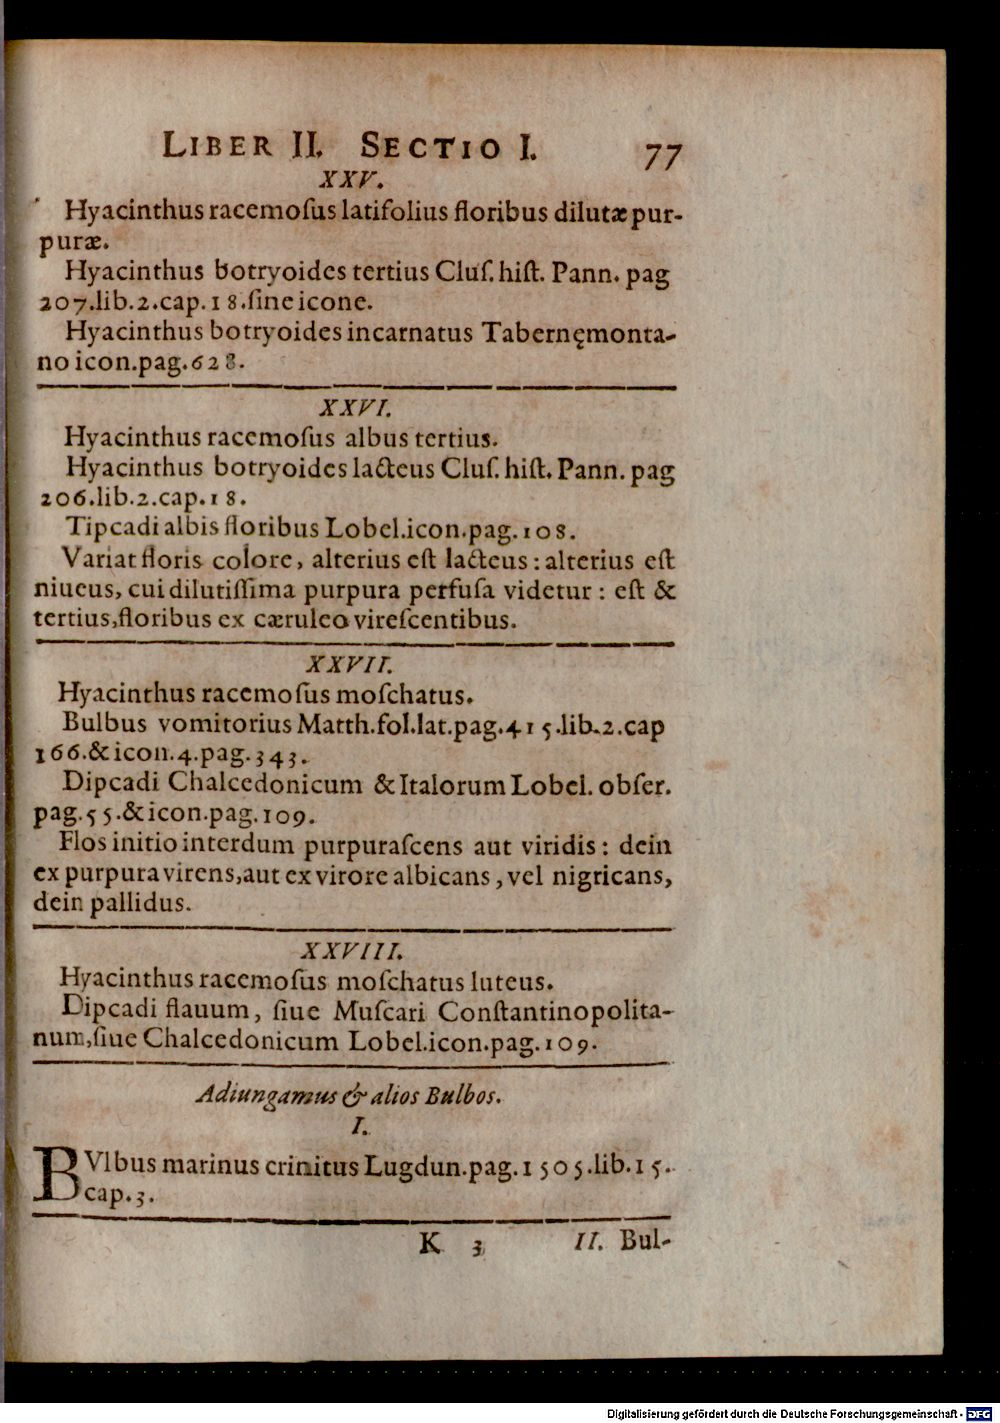 LIBER II. SECTIO I. 77
XXV.
Hyacinthus racemoſus latifolius floribus dilutæ pur-
puræ.
Hyacinthus botryoides tertius Cluſ. hiſt. Pann. pag
207.lib.2.cap.18.ſine icone.
Hyacinthus botryoides incarnatus Tabernęmonta-
no icon.pag.628.
XXVI.
Hyacinthus racemoſus albus tertius.
Hyacinthus botryoides lacteus Cluſ. hiſt. Pann. pag
206.lib.2.cap.18.
Tipcadi albis floribus Lobel.icon.pag.108.
Variat floris colore, alterius eſt lacteus : alterius eſt
niueus, cui dilutiſſima purpura perfuſa videtur : eſt &
tertius,floribus ex cæruleo vireſcentibus.
XXVII.
Hyacinthus racemoſus moſchatus.
Bulbus vomitorius Matth.fol.lat.pag.415.lib.2.cap
166.& icon.4.pag.343.
Dipcadi Chalcedonicum & Italorum Lobel. obſer.
pag.55.& icon.pag.109.
Flos initio interdum purpuraſcens aut viridis : dein
ex purpura virens,aut ex virore albicans, vel nigricans,
dein pallidus.
XXVIII.
Hyacinthus racemoſus moſchatus luteus.
Dipcadi flauum, ſiue Muſcari Conſtantinopolita-
num,ſiue Chalcedonicum Lobel.icon.pag.109.
Adiungamus & alios Bulbos.
I.
BVlbus marinus crinitus Lugdun.pag.1505.lib.15.
cap.3.
K 3 II. Bul-
Digitalisierung gefördert durch die Deutsche Forschungsgemeinschaft - DFG